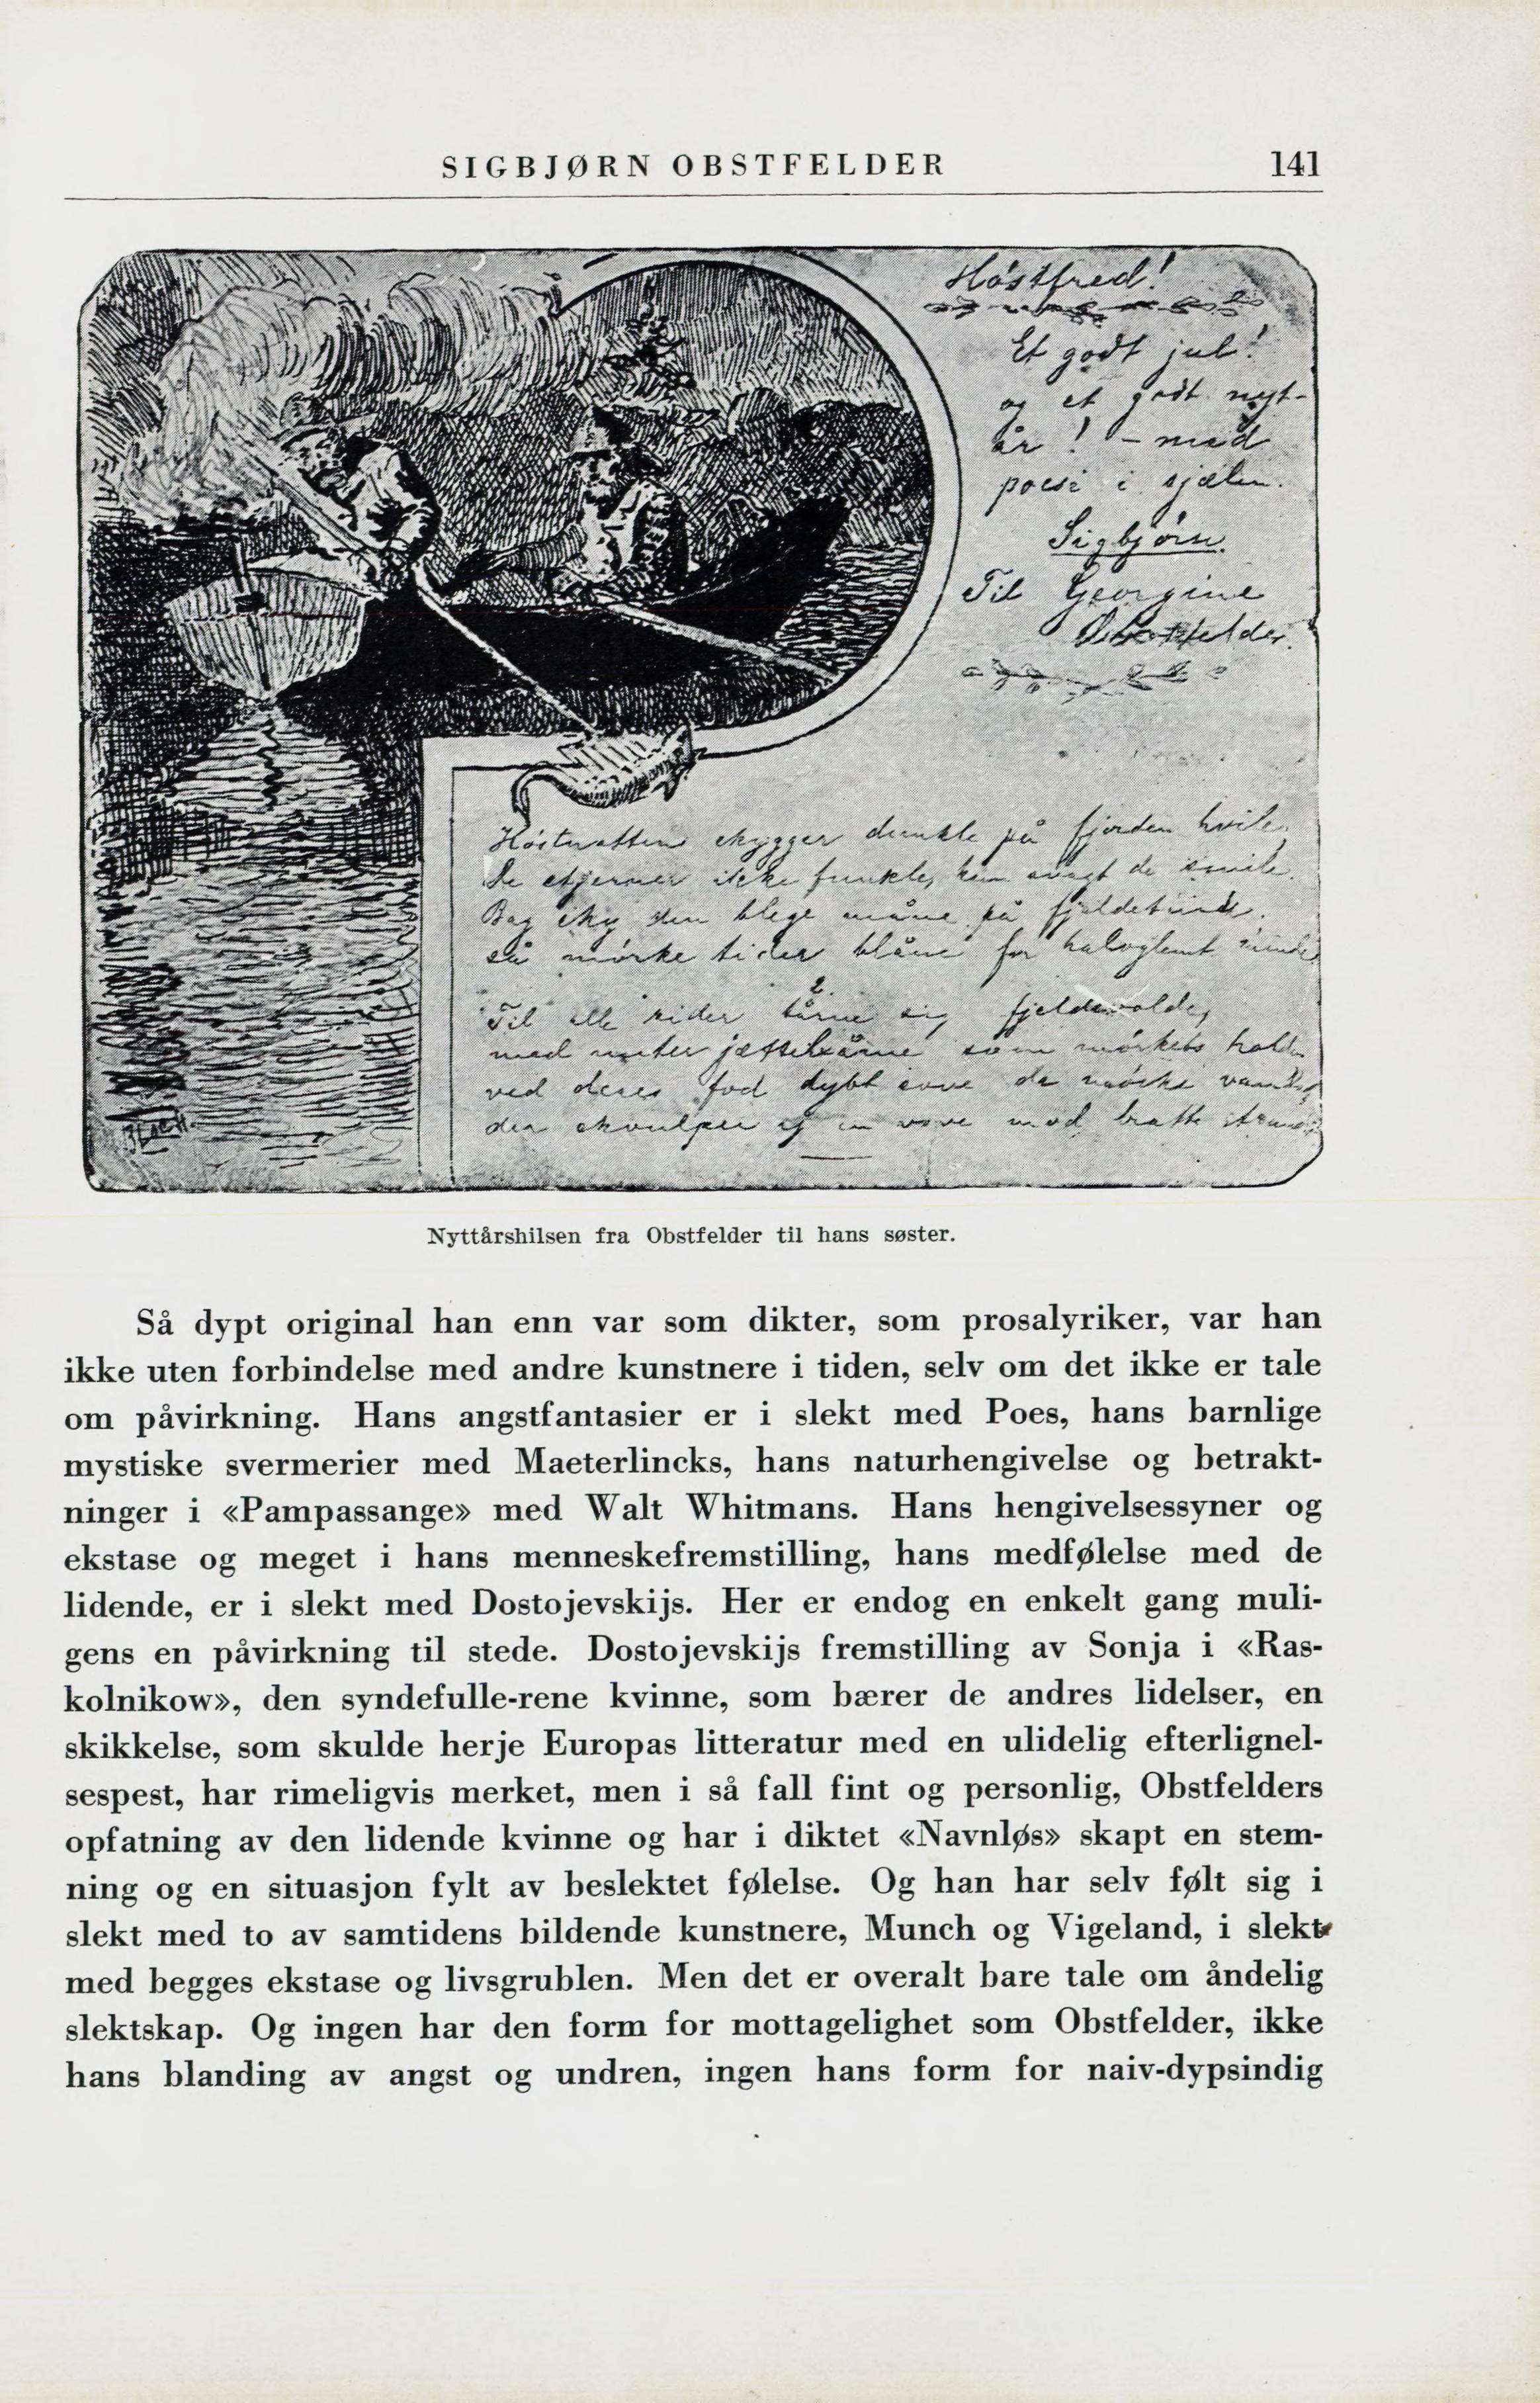 SIGBJØRN OBSTFELDER 141
Høstfred!
Et godt jul!
og et godt nyt-
år! - med
poesi i sjælen.
Sigbjørn.
Til Georgine
Obstfelder.
Høstnattens skygger dunkle på fjorden hvile.
De stjerner ikke funkle, kun svagt de smile.
Bag sky den blege måne på
så mørke tider blåne for halvglemt
2
Til alle sider tårne sig
med som mørkets
ved deres fod dybt sove de mørke
der skvulper ej en vove mod bratte
Nyttårshilsen fra Obstfelder til hans søster.
Så dypt original han enn var som dikter, som prosalyriker, var han
ikke uten forbindelse med andre kunstnere i tiden, selv om det ikke er tale
om påvirkning. Hans angstfantasier er i slekt med Poes, hans barnlige
mystiske svermerier med Maeterlincks, hans naturhengivelse og betrakt-
ninger i «Pampassange» med Walt Whitmans. Hans hengivelsessyner og
ekstase og meget i hans menneskefremstilling, hans medfølelse med de
lidende, er i slekt med Dostojevskijs. Her er endog en enkelt gang muli-
gens en påvirkning til stede. Dostojevskijs fremstilling av Sonja i «Ras-
kolnikow», den syndefulle-rene kvinne, som bærer de andres lidelser, en
skikkelse, som skulde herje Europas litteratur med en ulidelig efterlignel-
sespest, har rimeligvis merket, men i så fall fint og personlig, Obstfelders
opfatning av den lidende kvinne og har i diktet «Navnløs» skapt en stem-
ning og en situasjon fylt av beslektet følelse. Og han har selv følt sig i
slekt med to av samtidens bildende kunstnere, Munch og Vigeland, i slekt
med begges ekstase og livsgrublen. Men det er overalt bare tale om åndelig
slektskap. Og ingen har den form for mottagelighet som Obstfelder, ikke
hans blanding av angst og undren, ingen hans form for naiv-dypsindig